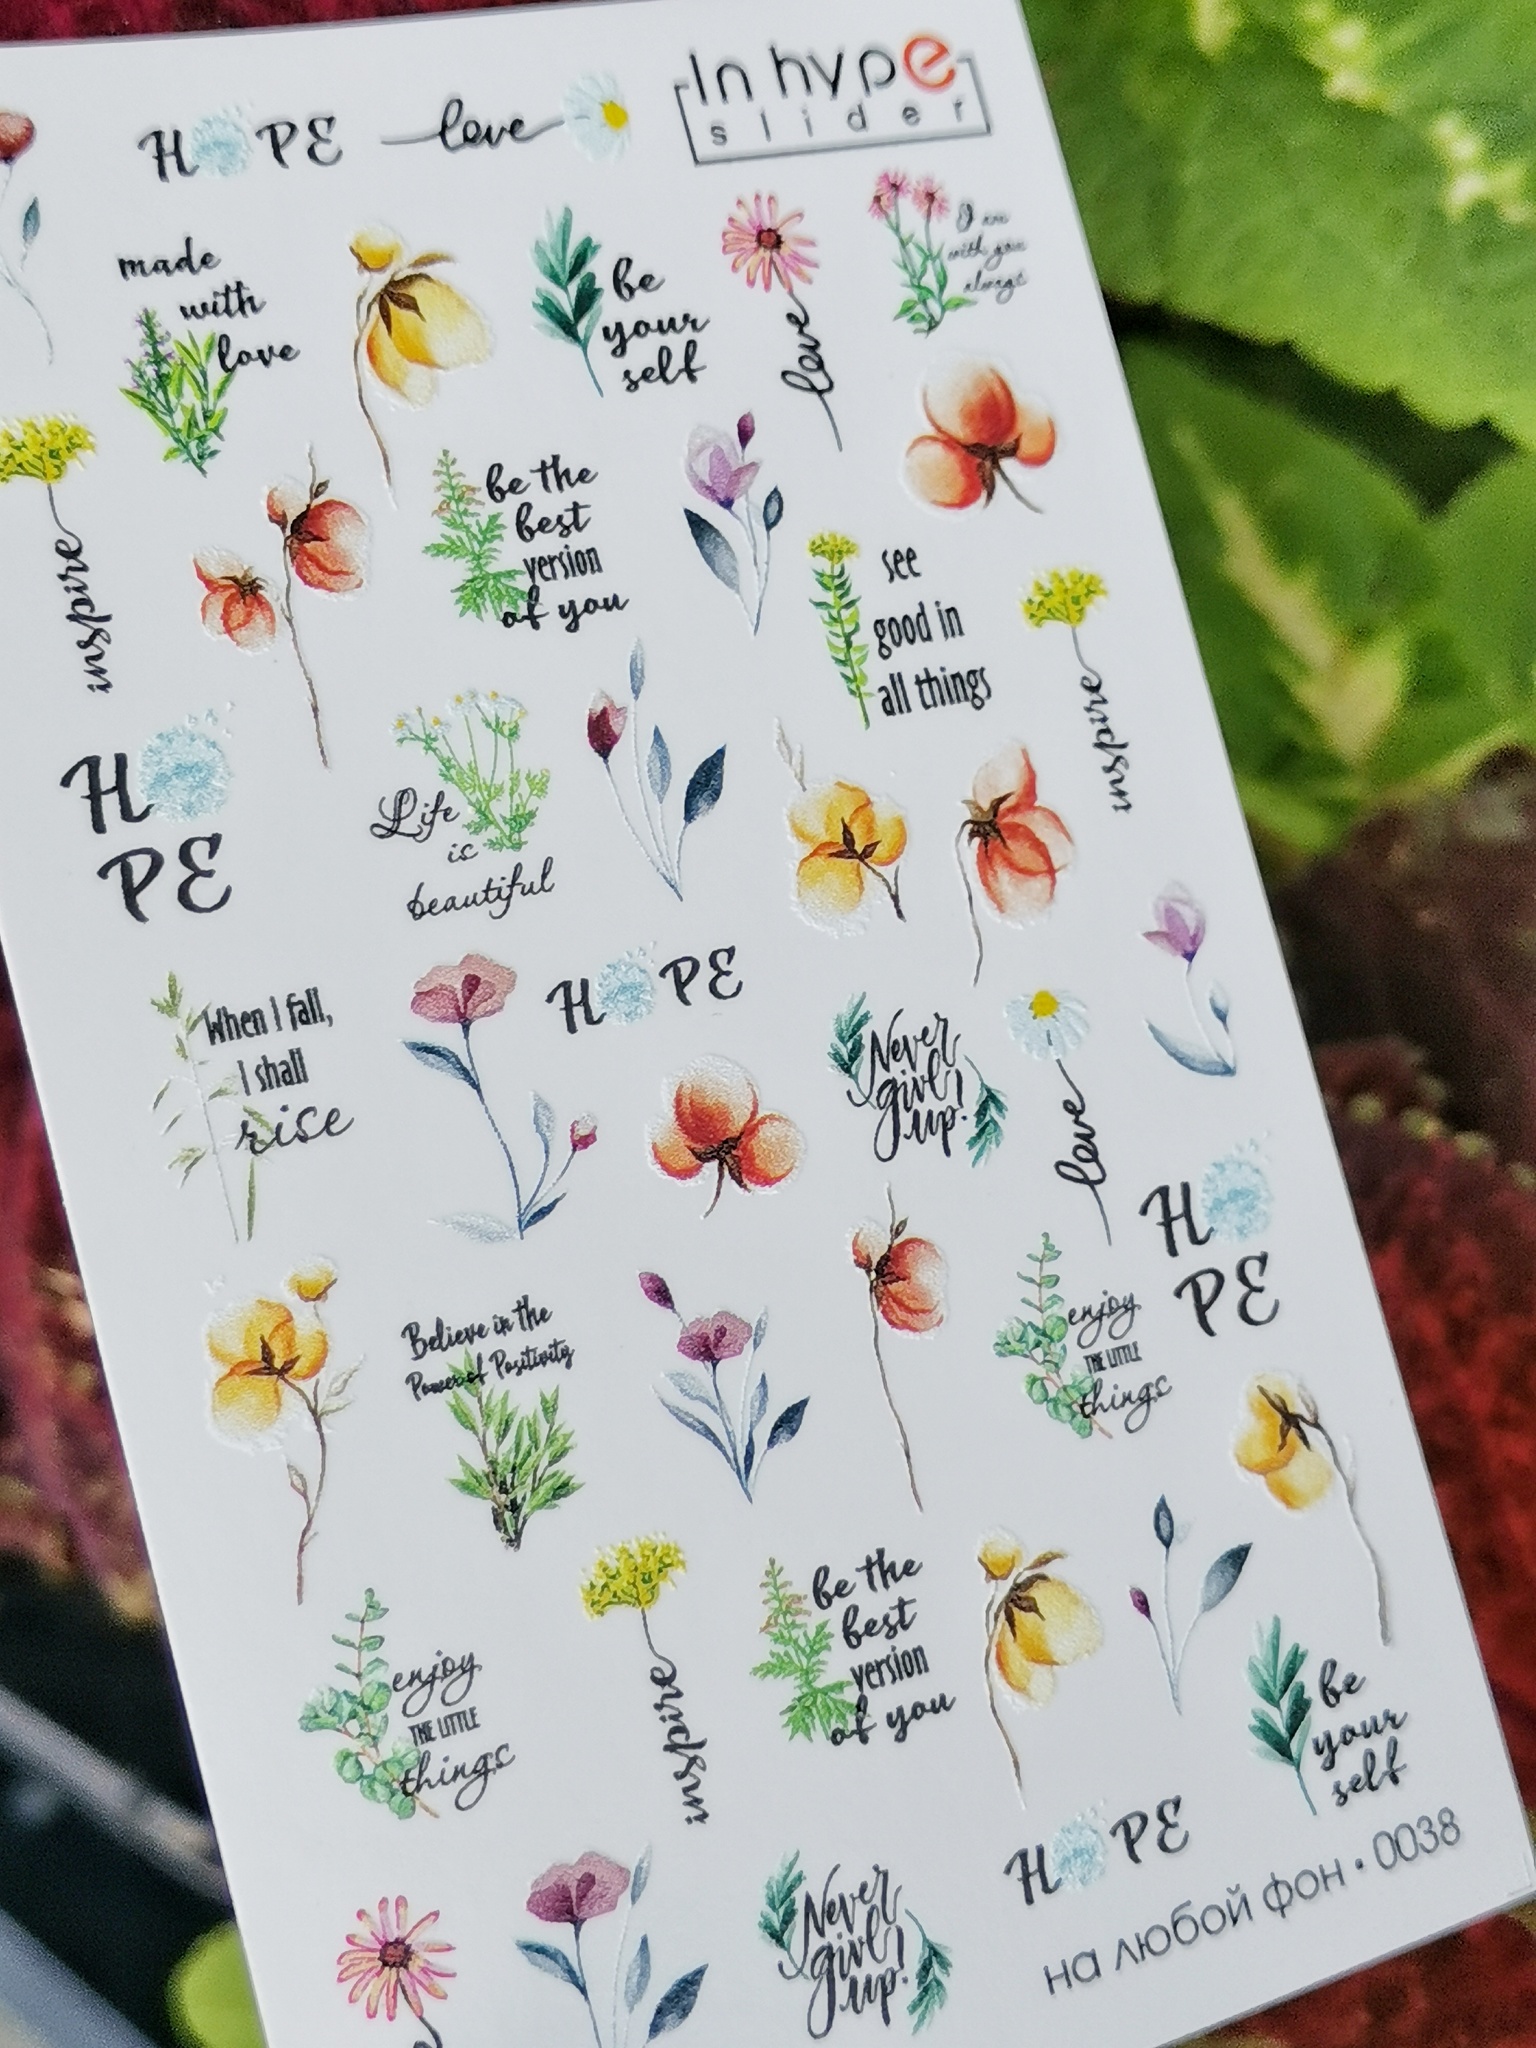 In hype
slider
HOPE
love
made
with
love
be
your
self
love
I am
with you
always
inspire
be the
best
version
of you
see
good in
all things
inspire
HO
PE
Life
is
beautiful
When I fall,
I shall
rise
HOPE
Never
give
up!
love
HO
PE
Believe in the
Power of Positivity
enjoy
THE LITTLE
things
enjoy
THE LITTLE
things
inspire
be the
best
version
of you
be
your
self
Never
give
up!
HOPE
на любой фон • 0038